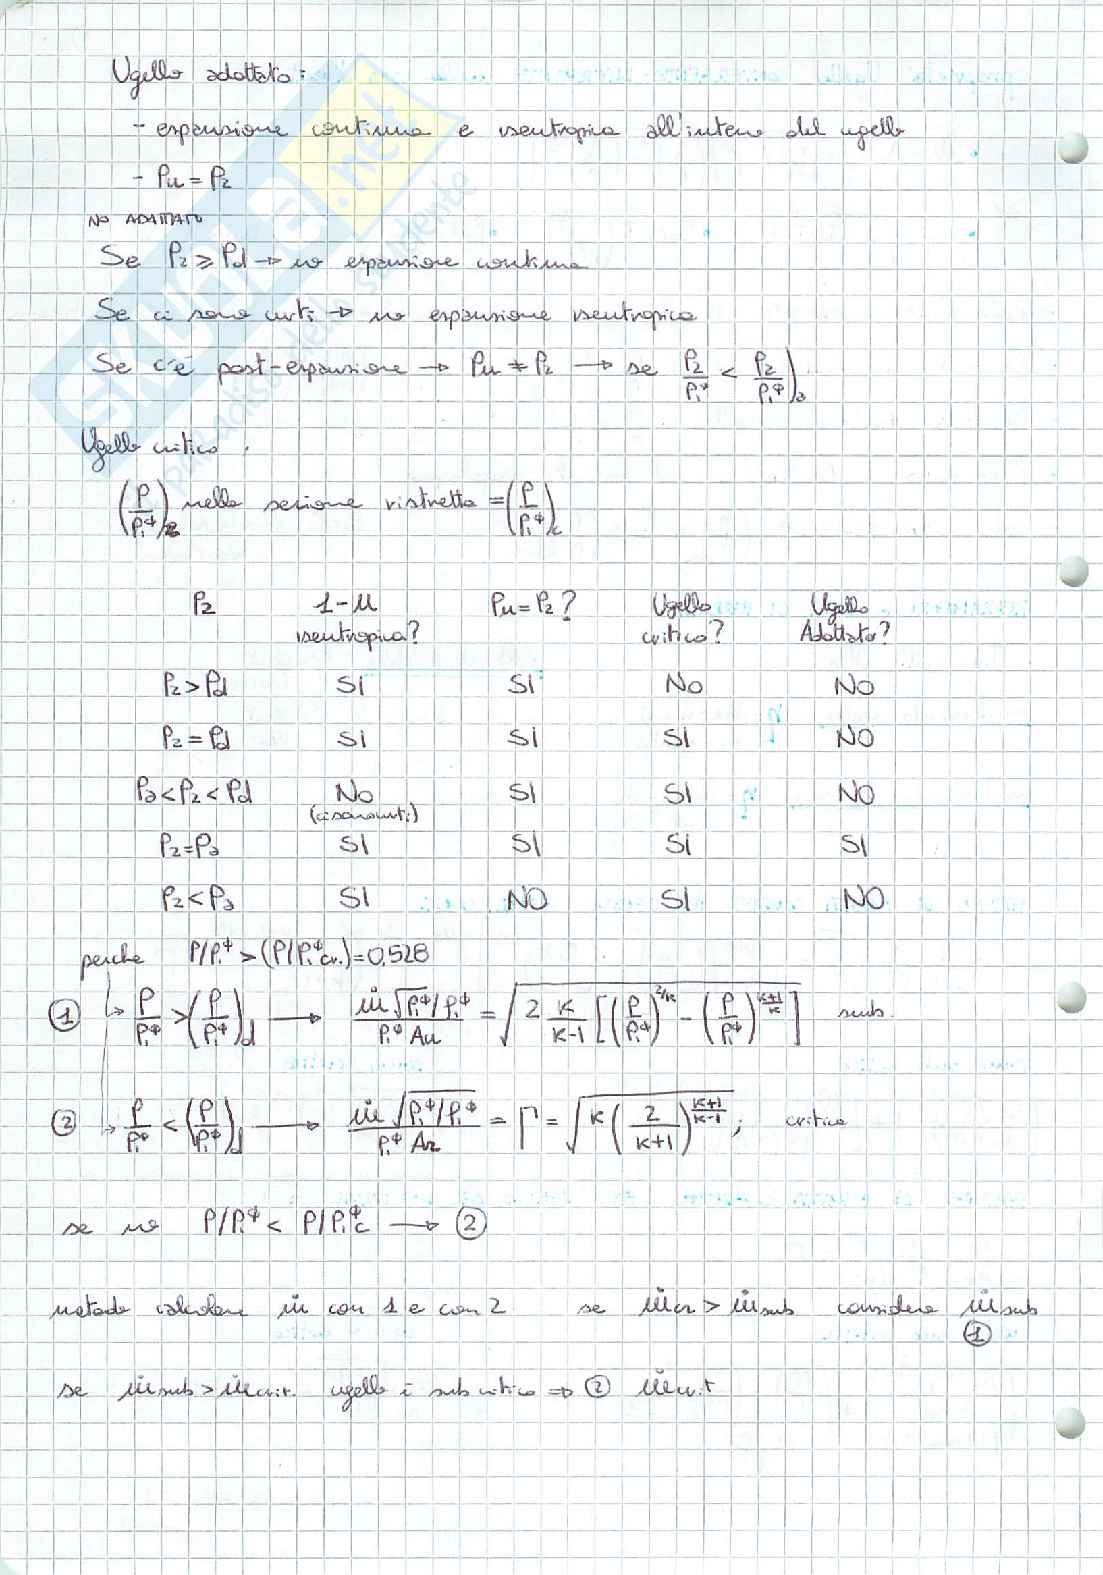 Ugello adattato:
- espansione continua e isentropica all'interno del ugello
- Pu = P2
NO ADATTATO
Se P2 ≥ Pd → no espansione continua
Se ci sono urti → no espansione isentropica
Se c'é post-espansione → Pu ≠ P2 → se P2/P1° < P2/P1°)a
Ugello critico .
(P/P1°)2 nella sezione ristretta = (P/P1°)c
P2 1-u Pu = P2? Ugello Ugello
isentropica? critico? Adattato?
P2 > Pd SI SI NO NO
P2 = Pd SI SI SI NO
Pa < P2 < Pd NO SI SI NO
(ci sono urti)
P2 = Pa SI SI SI SI
P2 < Pa SI NO SI NO
perche P/P1° > (P/P1°cr.) = 0,528
① P/P1° > (P/P1°)d → ṁ √P1°/ρ1° / P1° Au = √2 K/K-1 [(P/P1°)^2/K - (P/P1°)^K+1/K] sub.
② P/P1° < (P/P1°)d → ṁ √P1°/ρ1° / P1° Ar = Γ = √K (2/K+1)^K+1/K-1 ; critico
se no P/P1° < P/P1°c → ②
metodo calcolare ṁ con 1 e con 2 se ṁcr > ṁsub considero ṁsub
①
se ṁsub > ṁcrit. ugello è subcritico ⇒ ② ṁcrit
SKUOLA.net
paradiso dello studente